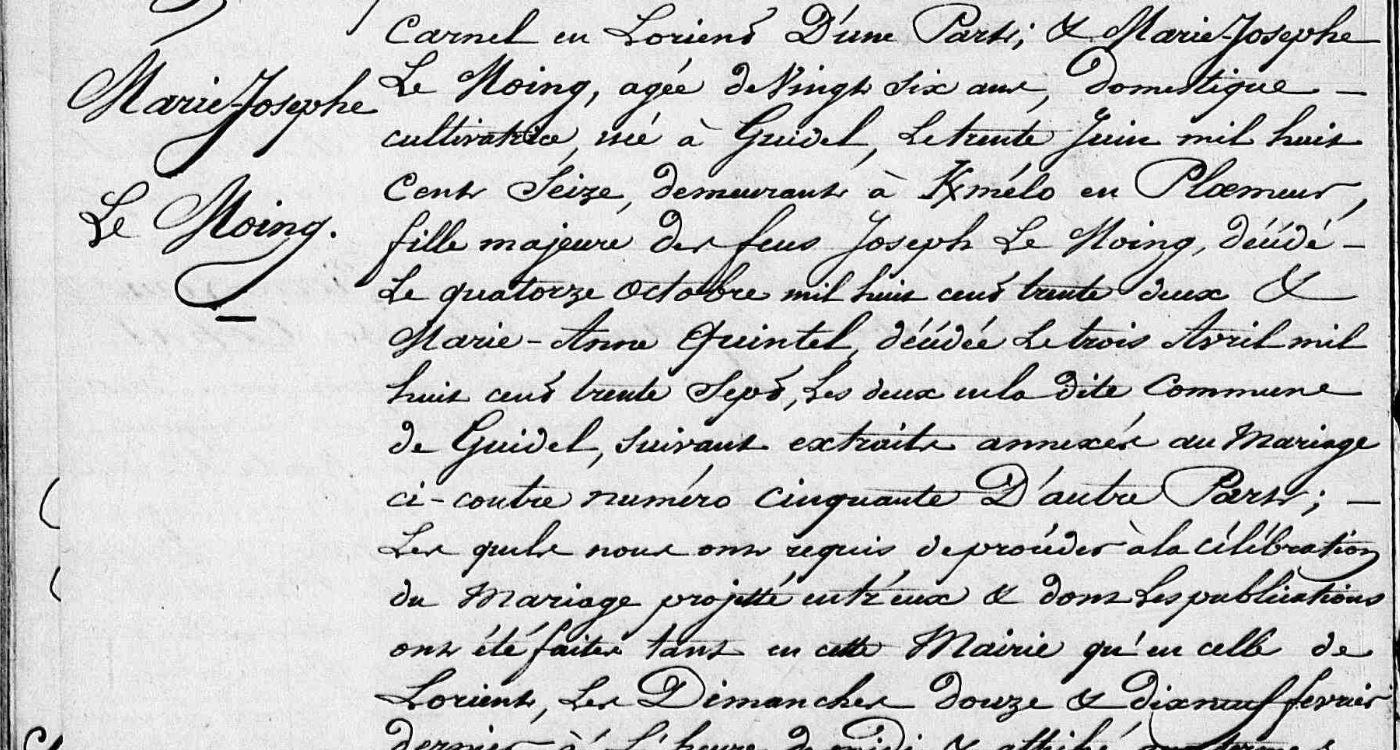 Marie-Josephe
Le Moing.
Carnel en Lorient D'une Part; & Marie-Josephe
Le Moing, agée de Vingt Six ans, domestique –
cultivatrice, né à Guidel, Le trente Juin mil huit
Cent Seize, demeurant à K/mélo en Ploemeur,
fille majeure des feus Joseph Le Moing, décédé –
Le quatorze octobre mil huit cent trente deux &
Marie-Anne Quintel, décédée Le trois Avril mil
huit cent trente Sept, Les deux en la dite Commune
de Guidel, suivant extraits annexés au Mariage
ci-contre numéro cinquante D'autre Part; –
Les quels nous ont requis de procéder à la célébration
du Mariage projetté entr'eux & dont Les publications
ont été faites tant en cette Mairie qu'en celle de
Lorient, Les Dimanches douze & dixneuf fevrier
dernier à L'heure de midi & affiché